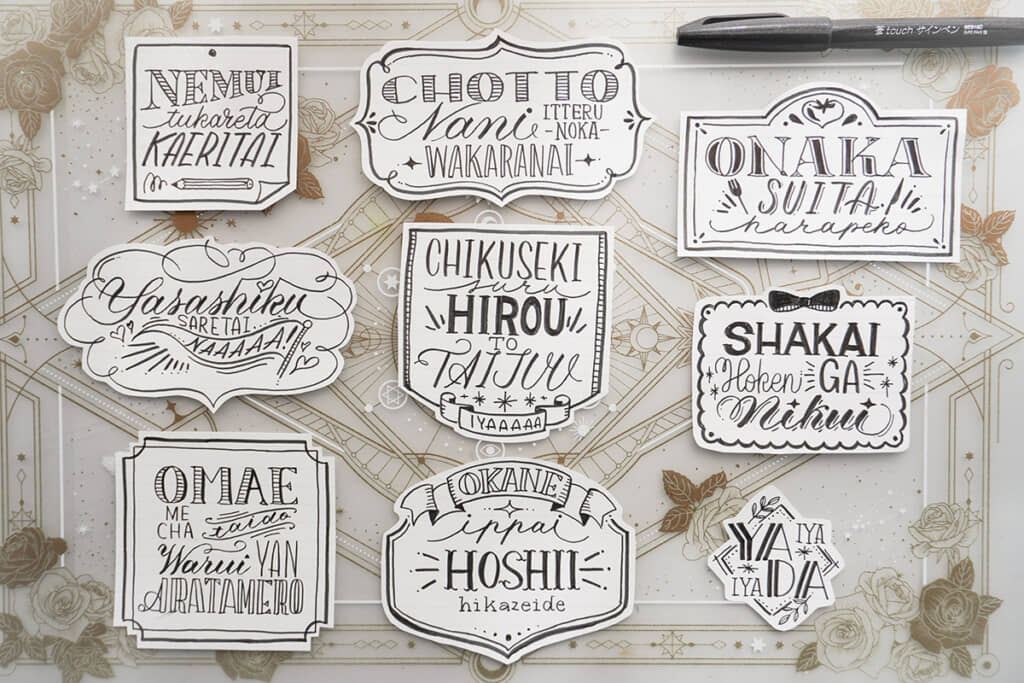 NEMUI
tukareta
KAERITAI
CHOTTO
Nani ITTERU
-NOKA-
WAKARANAI
touch サインペン
ONAKA
SUITA
harapeko
Yasashiku
SARETAI
NAAAAA!
CHIKUSEKI
suru
HIROU
TO
TAIJUU
IYAAAAA
SHAKAI
Hoken GA
Nikui
OMAE
ME
CHA taido
Warui YAN
ARATAMERO
OKANE
ippai
HOSHII
hikazeide
YA IYA
IYA DA